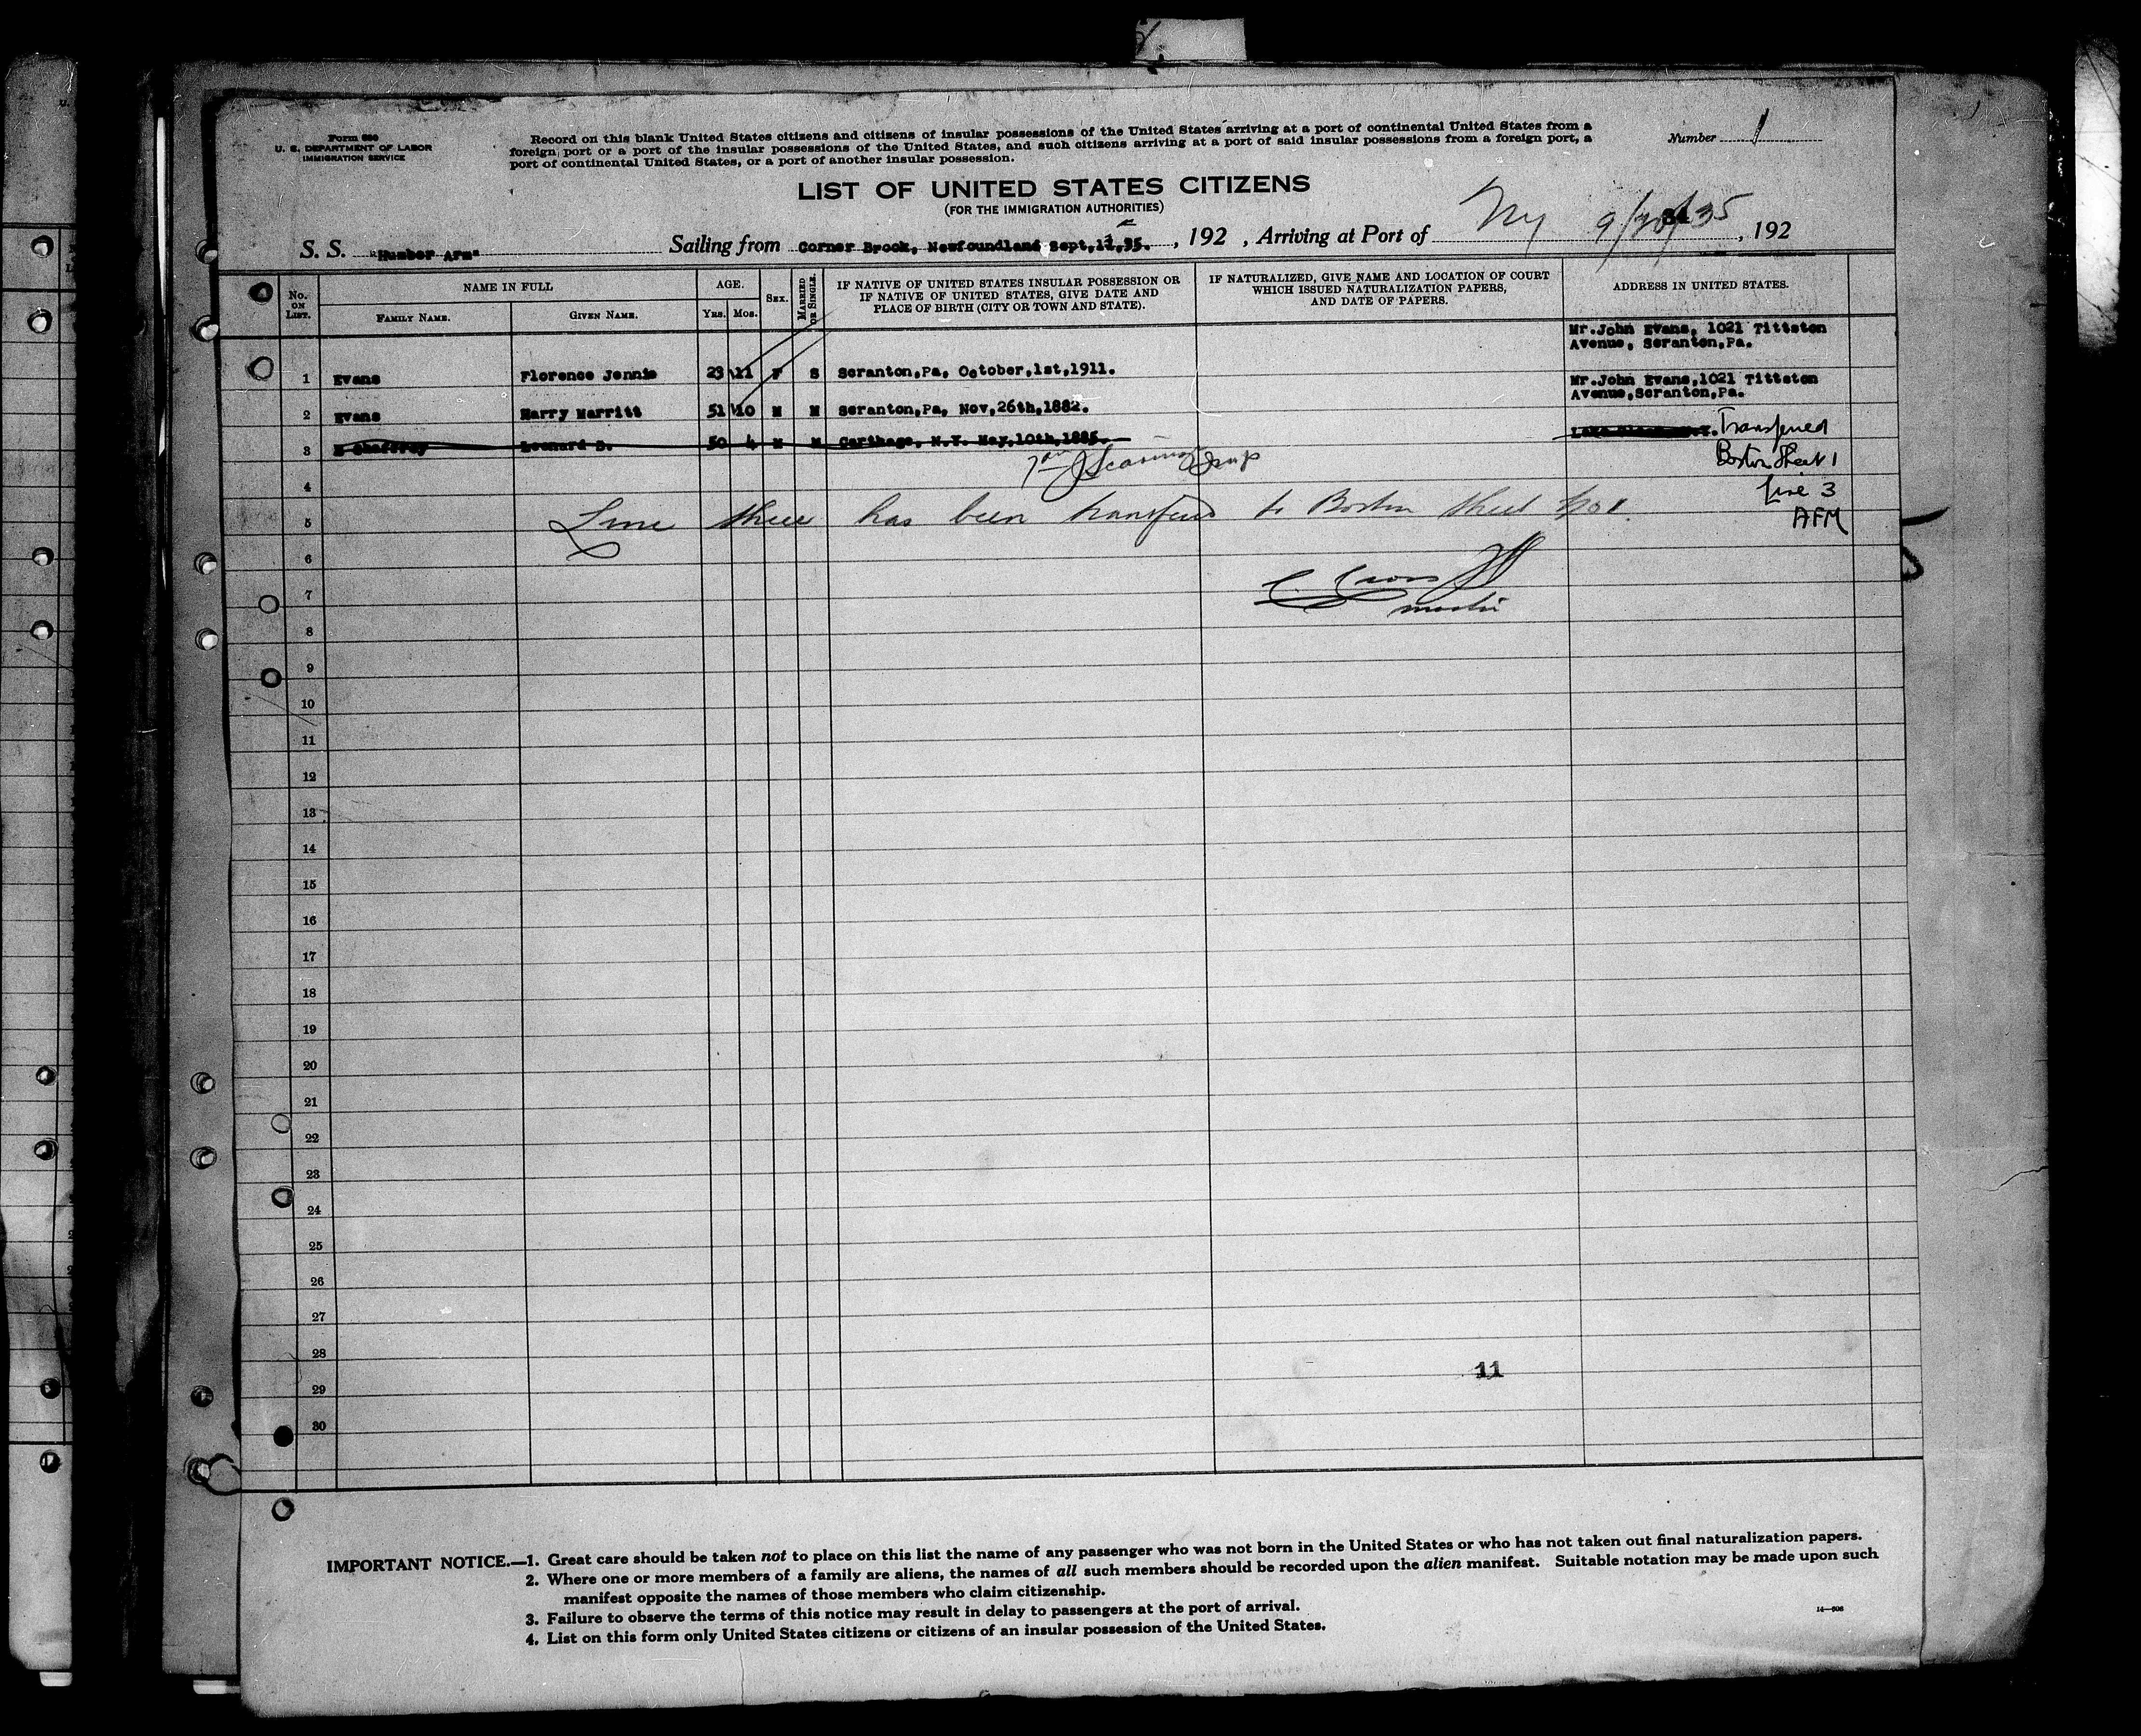 Form 630
U. S. DEPARTMENT OF LABOR
IMMIGRATION SERVICE
Record on this blank United States citizens and citizens of insular possessions of the United States arriving at a port of continental United States from a
foreign port or a port of the insular possessions of the United States, and such citizens arriving at a port of said insular possessions from a foreign port, a
port of continental United States, or a port of another insular possession.
Number 1
LIST OF UNITED STATES CITIZENS
(FOR THE IMMIGRATION AUTHORITIES)
S. S. "Humber Arm" Sailing from Corner Brook, Newfoundland Sept, , 192 , Arriving at Port of NY 9/ /35, 192
No. ON LIST.
NAME IN FULL
FAMILY NAME.
GIVEN NAME.
AGE.
YRS. MOS.
SEX.
MARRIED OR SINGLE.
IF NATIVE OF UNITED STATES INSULAR POSSESSION OR
IF NATIVE OF UNITED STATES, GIVE DATE AND
PLACE OF BIRTH (CITY OR TOWN AND STATE).
IF NATURALIZED, GIVE NAME AND LOCATION OF COURT
WHICH ISSUED NATURALIZATION PAPERS,
AND DATE OF PAPERS.
ADDRESS IN UNITED STATES.
Mr.John Evans, 1021 Tittston
Avenue, Scranton,Pa.
1 Evans Florence Jennie 23 11 F S Scranton,Pa, October,1st,1911.
Mr.John Evans,1021 Tittston
Avenue,Scranton,Pa.
2 Evans Harry Merritt 51 10 M M Scranton,Pa, Nov,26th,1882.
3 Leonard B. 50 4 M M Carthage, N.Y. May,10th,1885. Transferred
Boston Sheet 1
4
Line 3
5 Line three has been transferred to Boston sheet No 1.
AFM
6
7
master
8
9
10
11
12
13
14
15
16
17
18
19
20
21
22
23
24
25
26
27
28
11
29
30
IMPORTANT NOTICE.—1. Great care should be taken not to place on this list the name of any passenger who was not born in the United States or who has not taken out final naturalization papers.
2. Where one or more members of a family are aliens, the names of all such members should be recorded upon the alien manifest. Suitable notation may be made upon such
manifest opposite the names of those members who claim citizenship.
3. Failure to observe the terms of this notice may result in delay to passengers at the port of arrival.
4. List on this form only United States citizens or citizens of an insular possession of the United States.
14—606